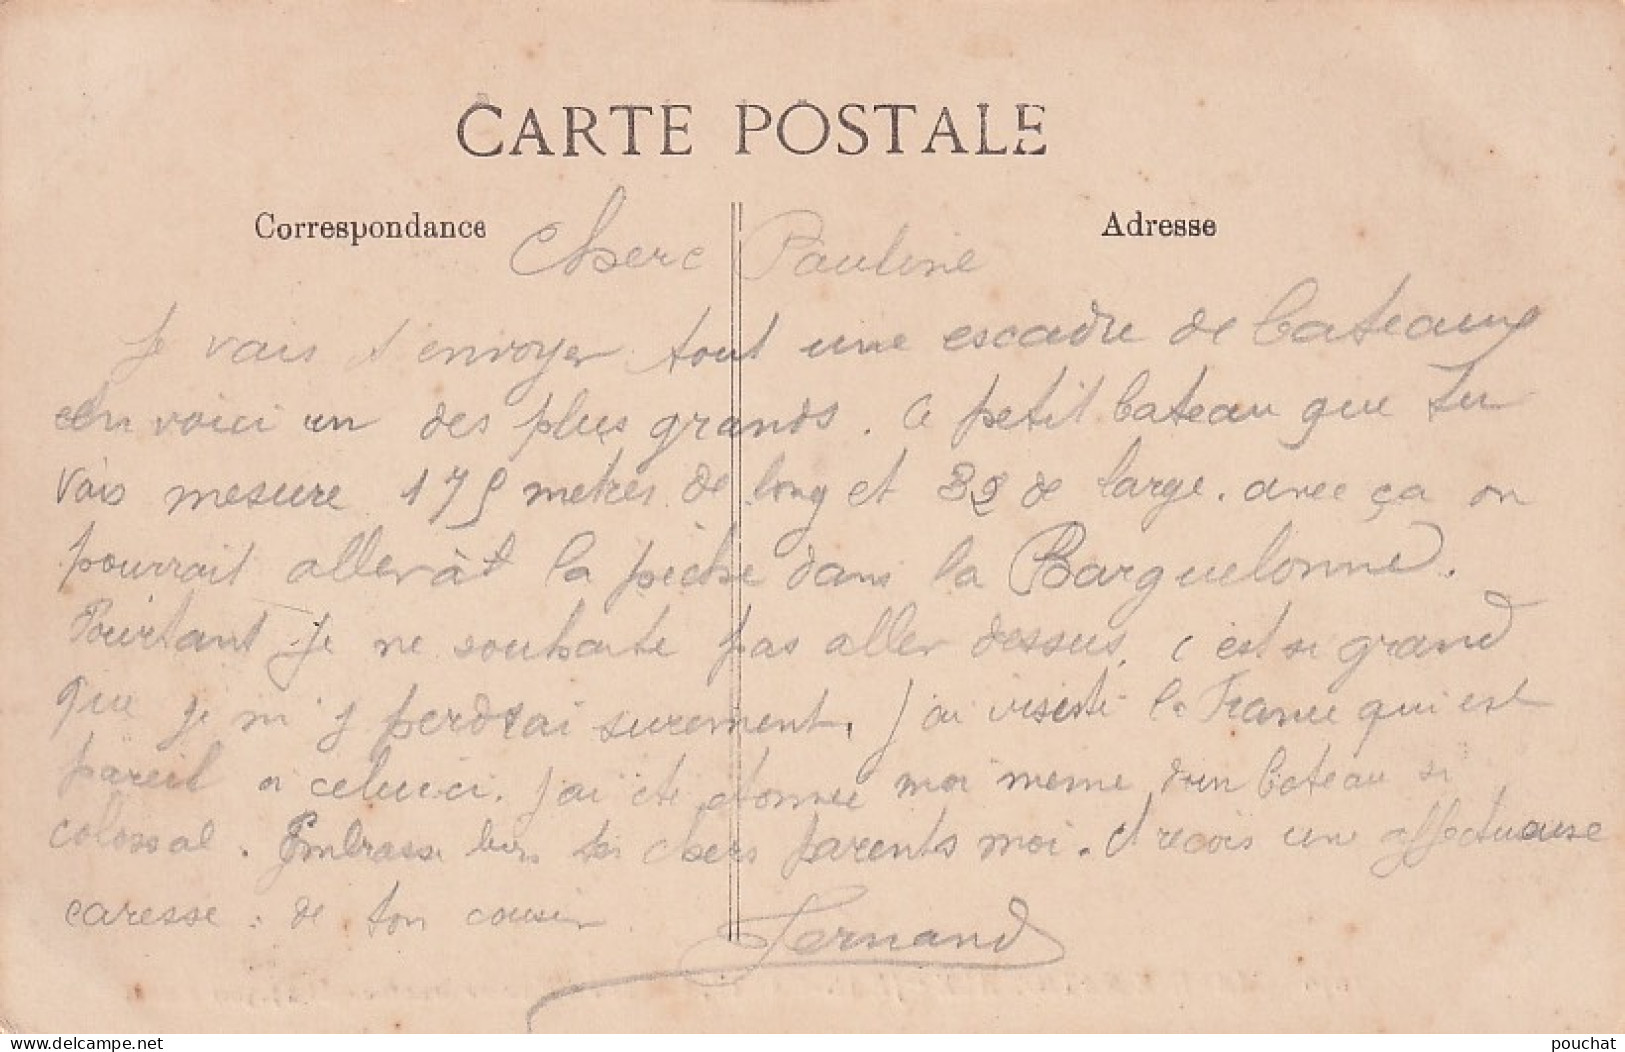 CARTE POSTALE
Correspondance
Adresse
Chere Pauline
Je vais t'envoyer tout une escadre de bateaux
en voici un des plus grands. Ce petit bateau que tu
vois mesure 175 metres de long et 32 de large. avec ça on
pourrait aller à la pèche dans la Barguelonne.
Pourtant je ne souhaite pas aller dessus. c'est si grand
que je m'y perdrai surement. J'ai visité la France qui est
pareil a celui ci. J'ai été étonnée moi meme d'un bateau si
colossal. Embrasse bien tes chers parents moi. et recois une affectueuse
caresse. de ton cousin
Fernand
pouchat
www.delcampe.net